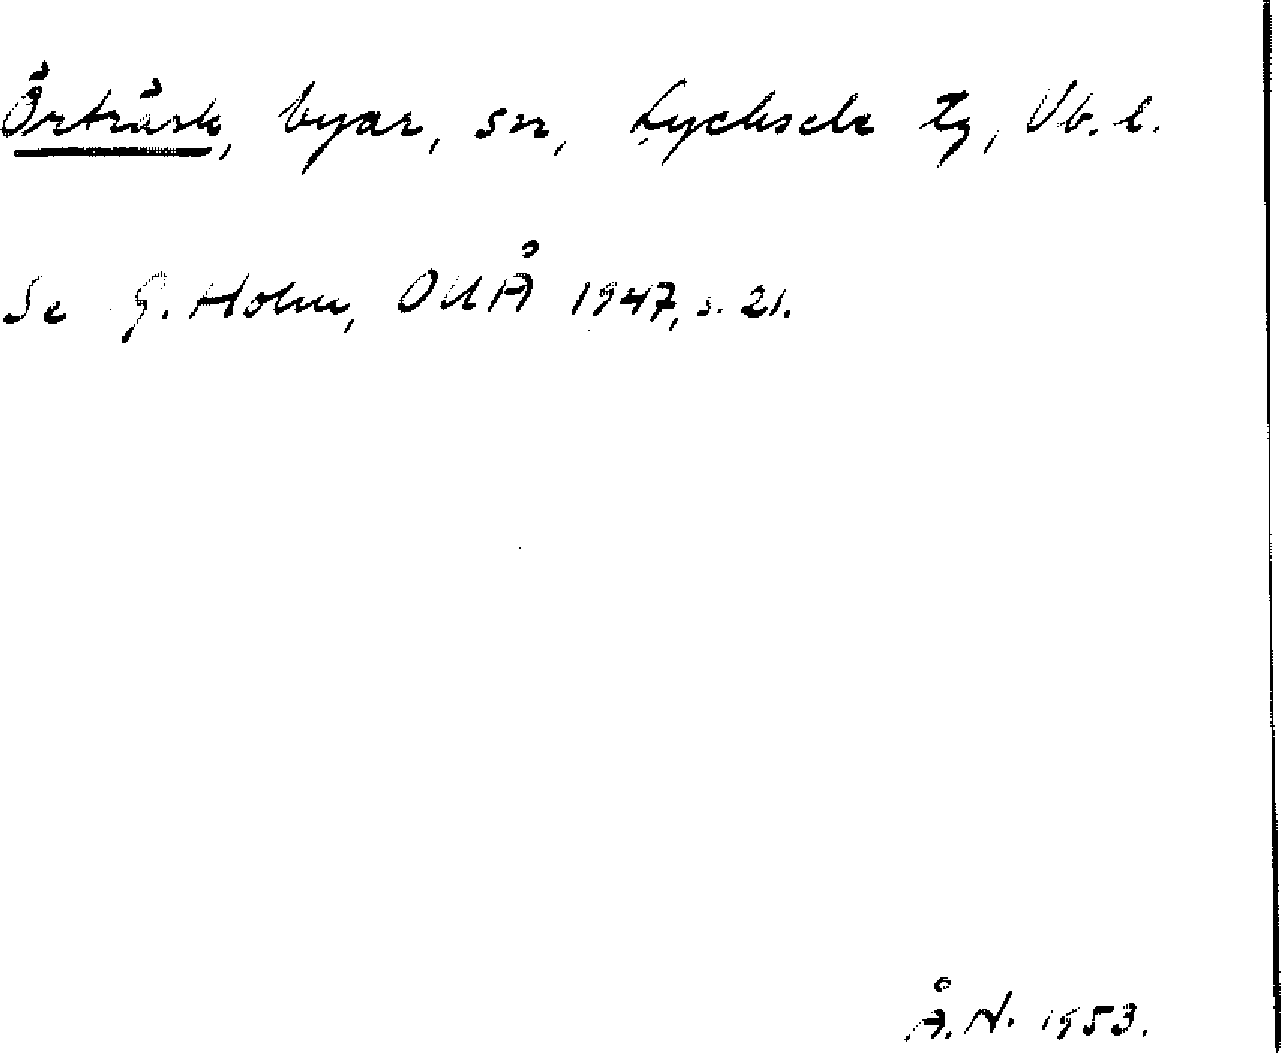 Örträsk, byar, sn, Lycksele tg, Vb. l.
Se G. Holm, OUÅ 1947, s. 21.
Å. N. 1953.